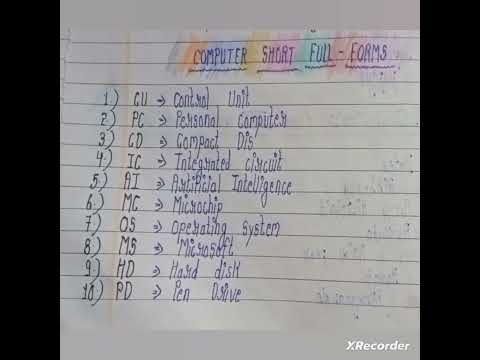 COMPUTER SHORT FULL-FORMS
1) CU ⇒ Control Unit
2) PC ⇒ Personal computer
3) CD ⇒ Compact Dis
4) IC ⇒ Integrated circuit
5) AI ⇒ Artificial Intelligence
6) MC ⇒ Microchip
7) OS ⇒ operating system
8) MS ⇒ Microsoft
9) HD ⇒ Hard disk
10) PD ⇒ Pen Drive
XRecorder